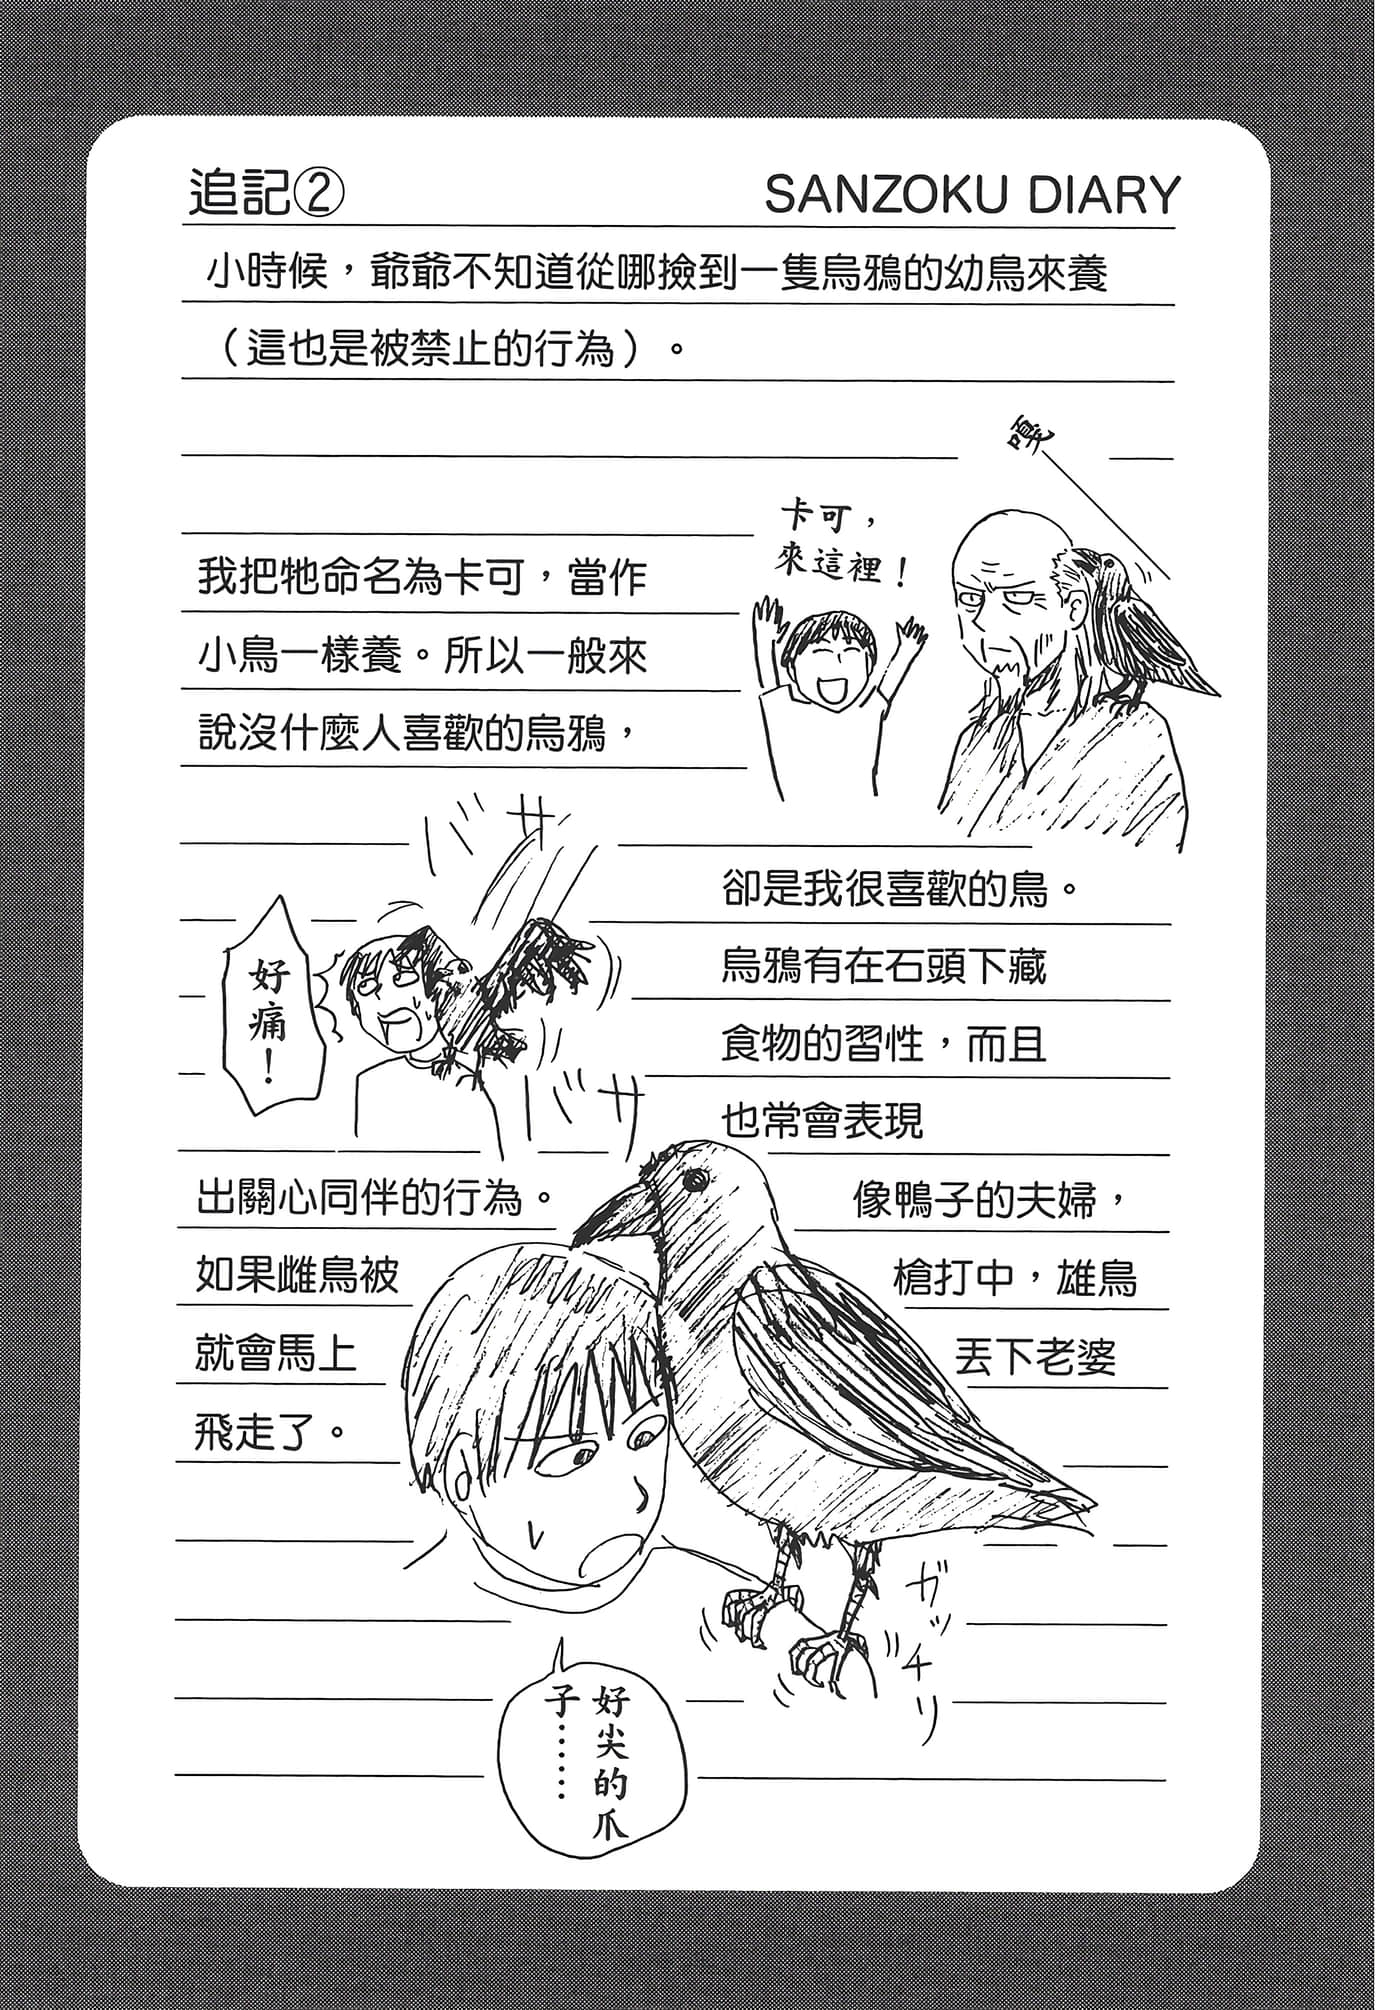 追記②
SANZOKU DIARY
小時候，爺爺不知道從哪撿到一隻烏鴉的幼鳥來養
（這也是被禁止的行為）。
嘎
卡可，
來這裡！
我把牠命名為卡可，當作
小鳥一樣養。所以一般來
說沒什麼人喜歡的烏鴉，
バサ
卻是我很喜歡的鳥。
烏鴉有在石頭下藏
食物的習性，而且
也常會表現
好痛！
バサ
出關心同伴的行為。 像鴨子的夫婦，
如果雌鳥被 槍打中，雄鳥
就會馬上 丟下老婆
飛走了。
ガッチリ
好尖的爪
子……